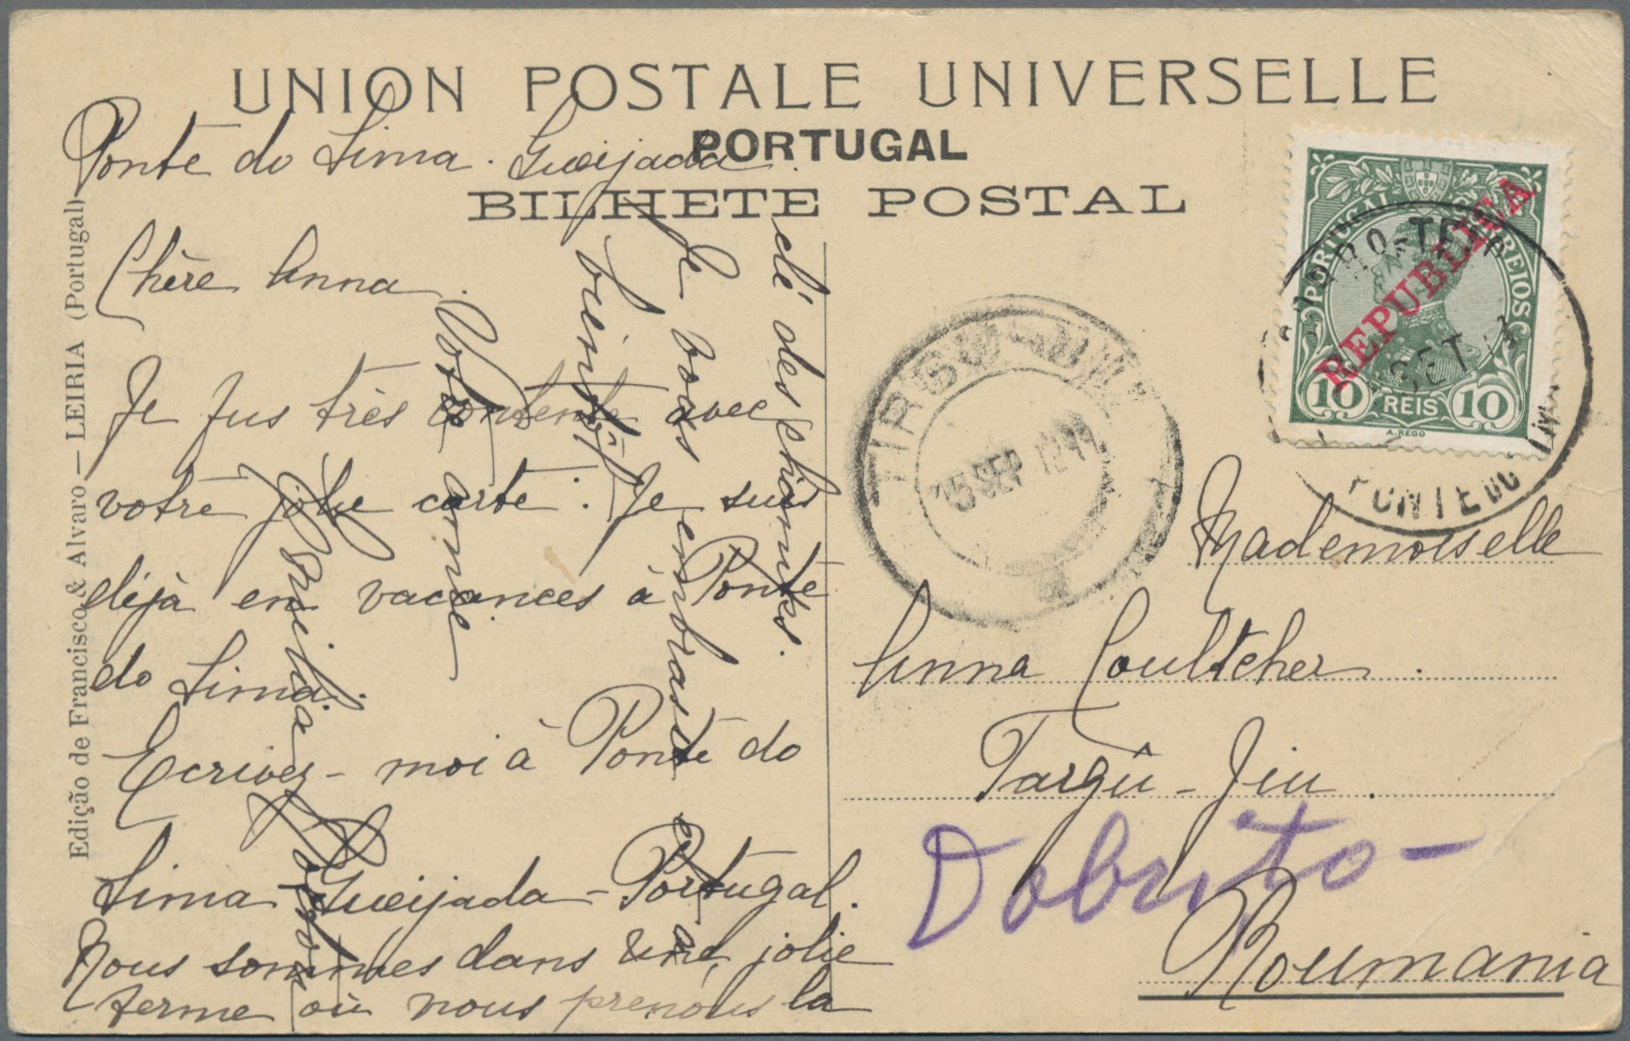 UNION POSTALE UNIVERSELLE
PORTUGAL
BILHETE POSTAL
Edição de Francisco & Alvaro — LEIRIA (Portugal)
Ponte do Lima. Queijada.
Chère Anna.
Je fus très contente avec
votre jolie carte. Je suis
déjà en vacances à Ponte
do Lima.
Ecrivez-moi à Ponte do
Lima Queijada - Portugal.
Nous sommes dans une jolie
ferme où nous prenons la
clé des champs.
Je vous embrasse et à
bientôt.
Votre amie
PORTUGAL CORREIOS
REPUBLICA
10 REIS 10
A. REGO
SET
PONTE DO LIMA
TIRGU-JIU
15 SEP. 1911
Mademoiselle
Anna Coultcher.
Targû-Jiu.
Dobrito-
Roumania